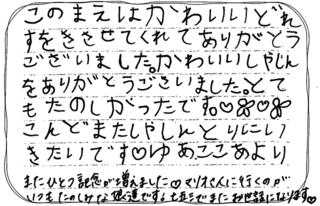 このまえはかわいいどれ
すをきさせてくれてありがとう
ございました。かわいいしゃじん
をありがとうございました。とて
もたのしかったです。♡
こんどまたしゃしんとりにい
きたいです♡ゆあここあより
またひとつ記念が増えました♡マリオさんに行くのが
いつもたのしみな娘達です。七五三でまたお世話になります♡